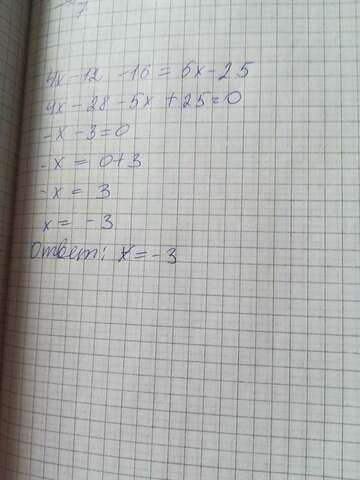 4x - 12 - 16 = 5x - 25
4x - 28 - 5x + 25 = 0
-x - 3 = 0
-x = 0+3
-x = 3
x = -3
Ответ: x = -3